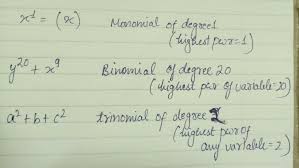 x¹ = (x) Monomial of degree 1
(highest pwr = 1)
y²⁰ + x⁹ Binomial of degree 20
(highest pwr of variable = 20)
a² + b + c² trinomial of degree 2
(highest pwr of
any variable = 2)